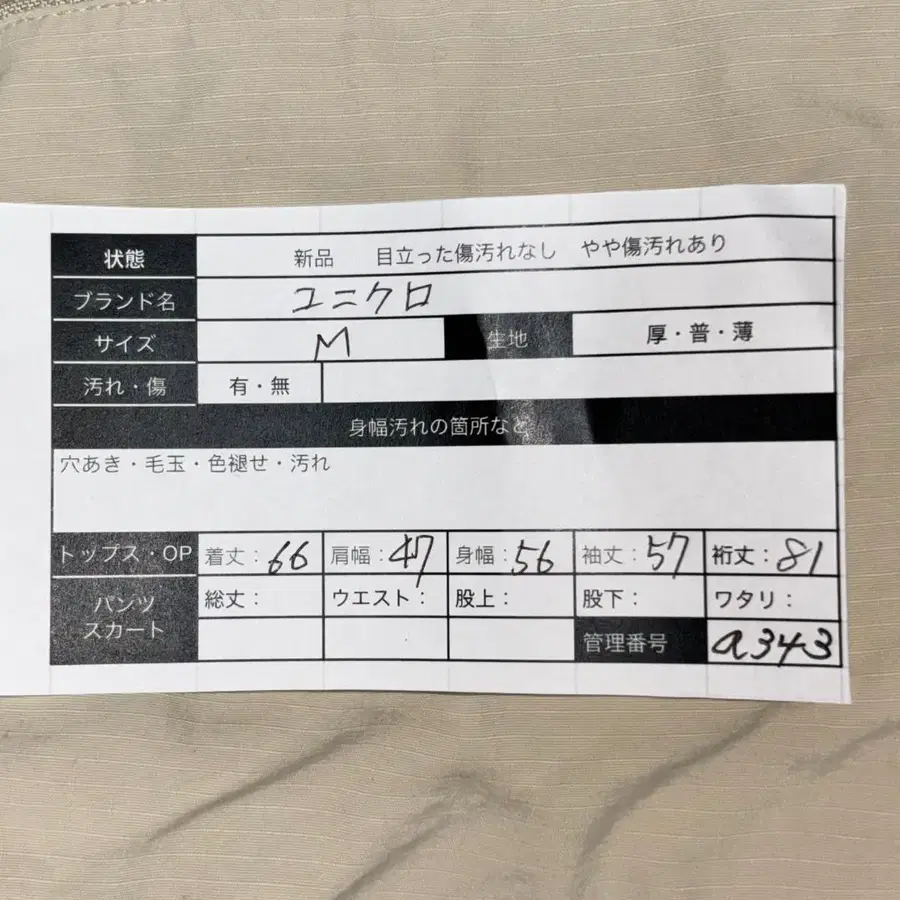 状態 新品 目立った傷汚れなし やや傷汚れあり
ブランド名 ユニクロ
サイズ M 生地 厚・普・薄
汚れ・傷 有・無
身幅汚れの箇所など
穴あき・毛玉・色褪せ・汚れ
トップス・OP 着丈：66 肩幅：47 身幅：56 袖丈：57 裄丈：81
パンツ スカート 総丈： ウエスト： 股上： 股下： ワタリ：
管理番号 a343